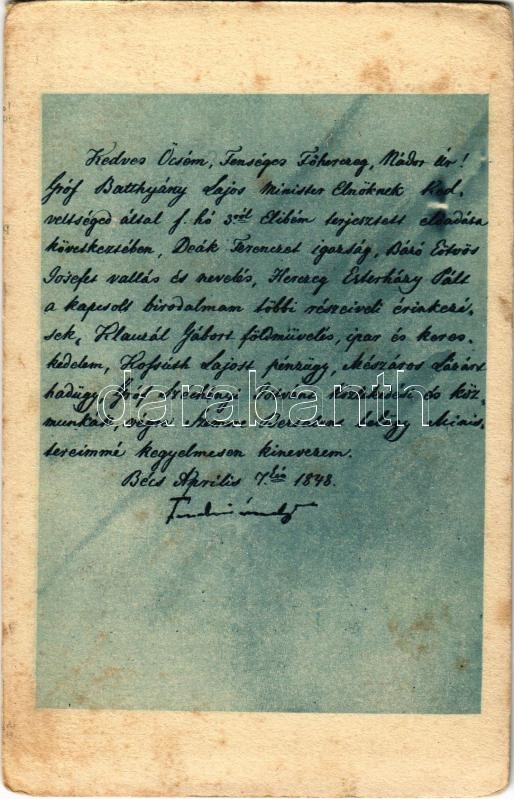 Kedves Öcsém, Fenséges Főherczeg, Nádor Úr!
Gróf Batthyány Lajos Minister Elnöknek Ked,
veltséged által f. hó 3ról Elibém terjesztett előadása
következtében, Deák Ferenczet igazság, Báró Eötvös
Josefet vallás és nevelés, Herczeg Esterházy Pált
a kapcsolt birodalmam többi részeiveli érinkezé,
sek, Klauzál Gábort földmüvelés, ipar és keres,
kedelem, Kossúth Lajost pénzügy, Mészáros Lázárt
hadügy Gróf Széchényi István közlekedési és köz,
munkás, végre Szemere Bertalant belügy Minis,
tereimmé kegyelmesen kinevezem.
Bécs Április 7.én 1848.
Ferdinánd
darabanth